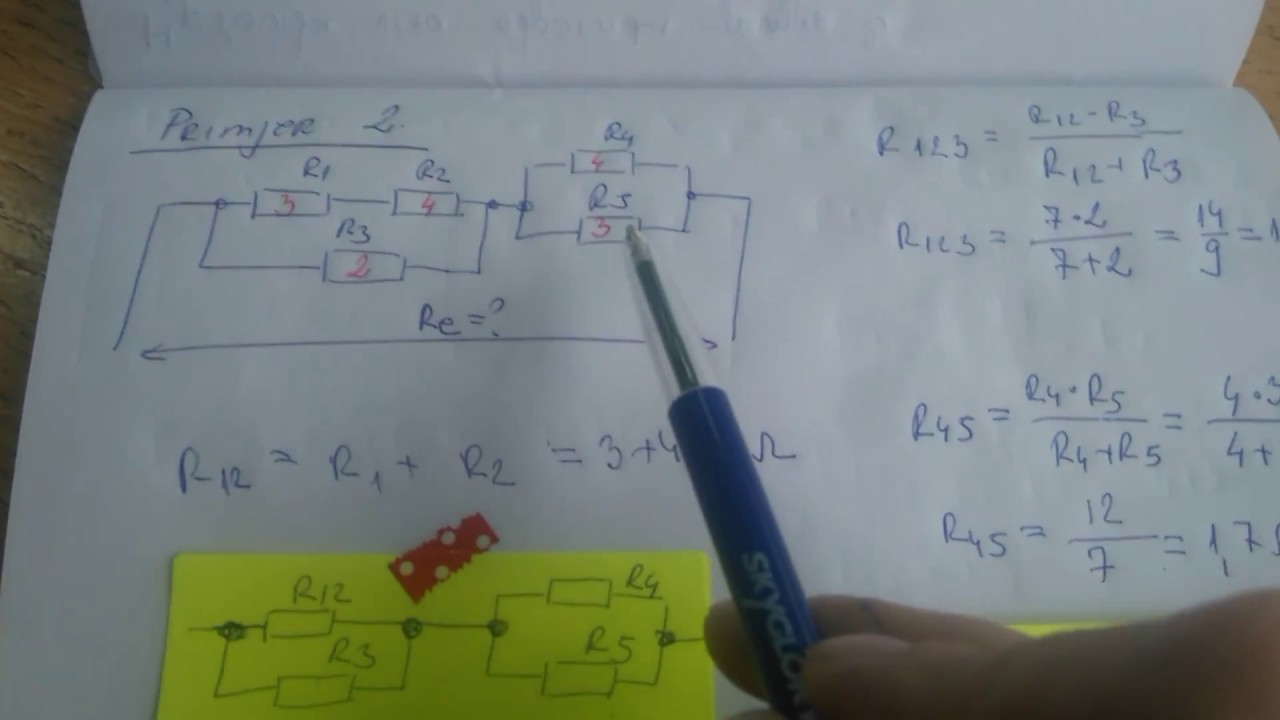 Primjer 2.
R1 R2
3 4
R3
2
R4
4
R5
3
Re=?
R12 = R1 + R2 = 3+4 Ω
R12
R3
R4
R5
R123 = R12·R3 / R12+R3
R123 = 7·2 / 7+2 = 14/9 = 1
R45 = R4·R5 / R4+R5 = 4·3 / 4+
R45 = 12/7 = 1,7
SKYCLO